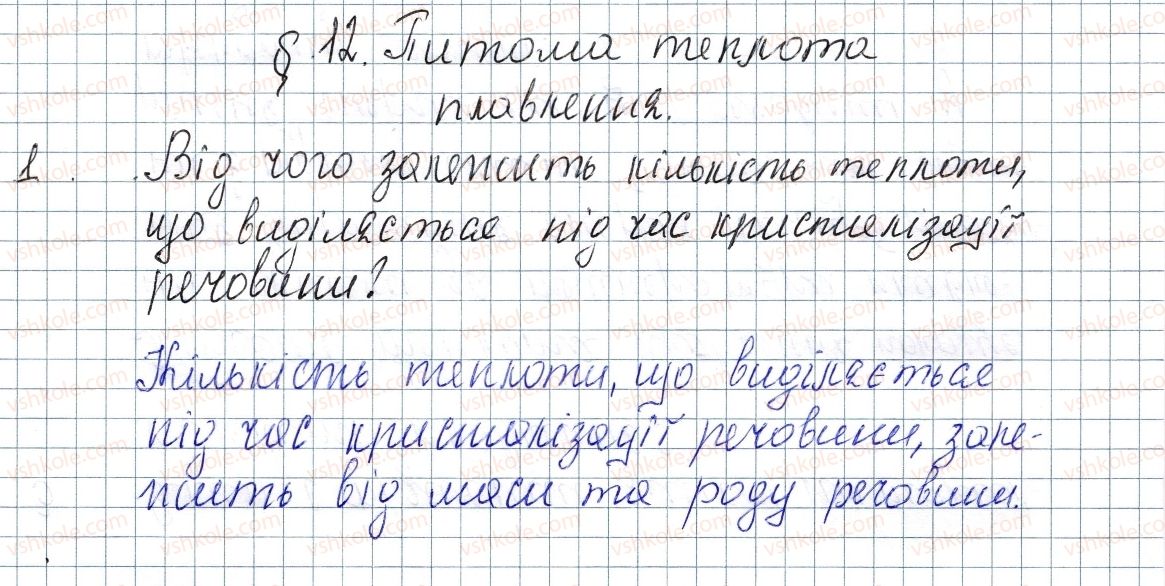 § 12. Питома теплота
плавлення.
1. Від чого залежить кількість теплоти,
що виділяється під час кристалізації
речовини?
Кількість теплоти, що виділяється
під час кристалізації речовини, зале-
жить від маси та роду речовини.